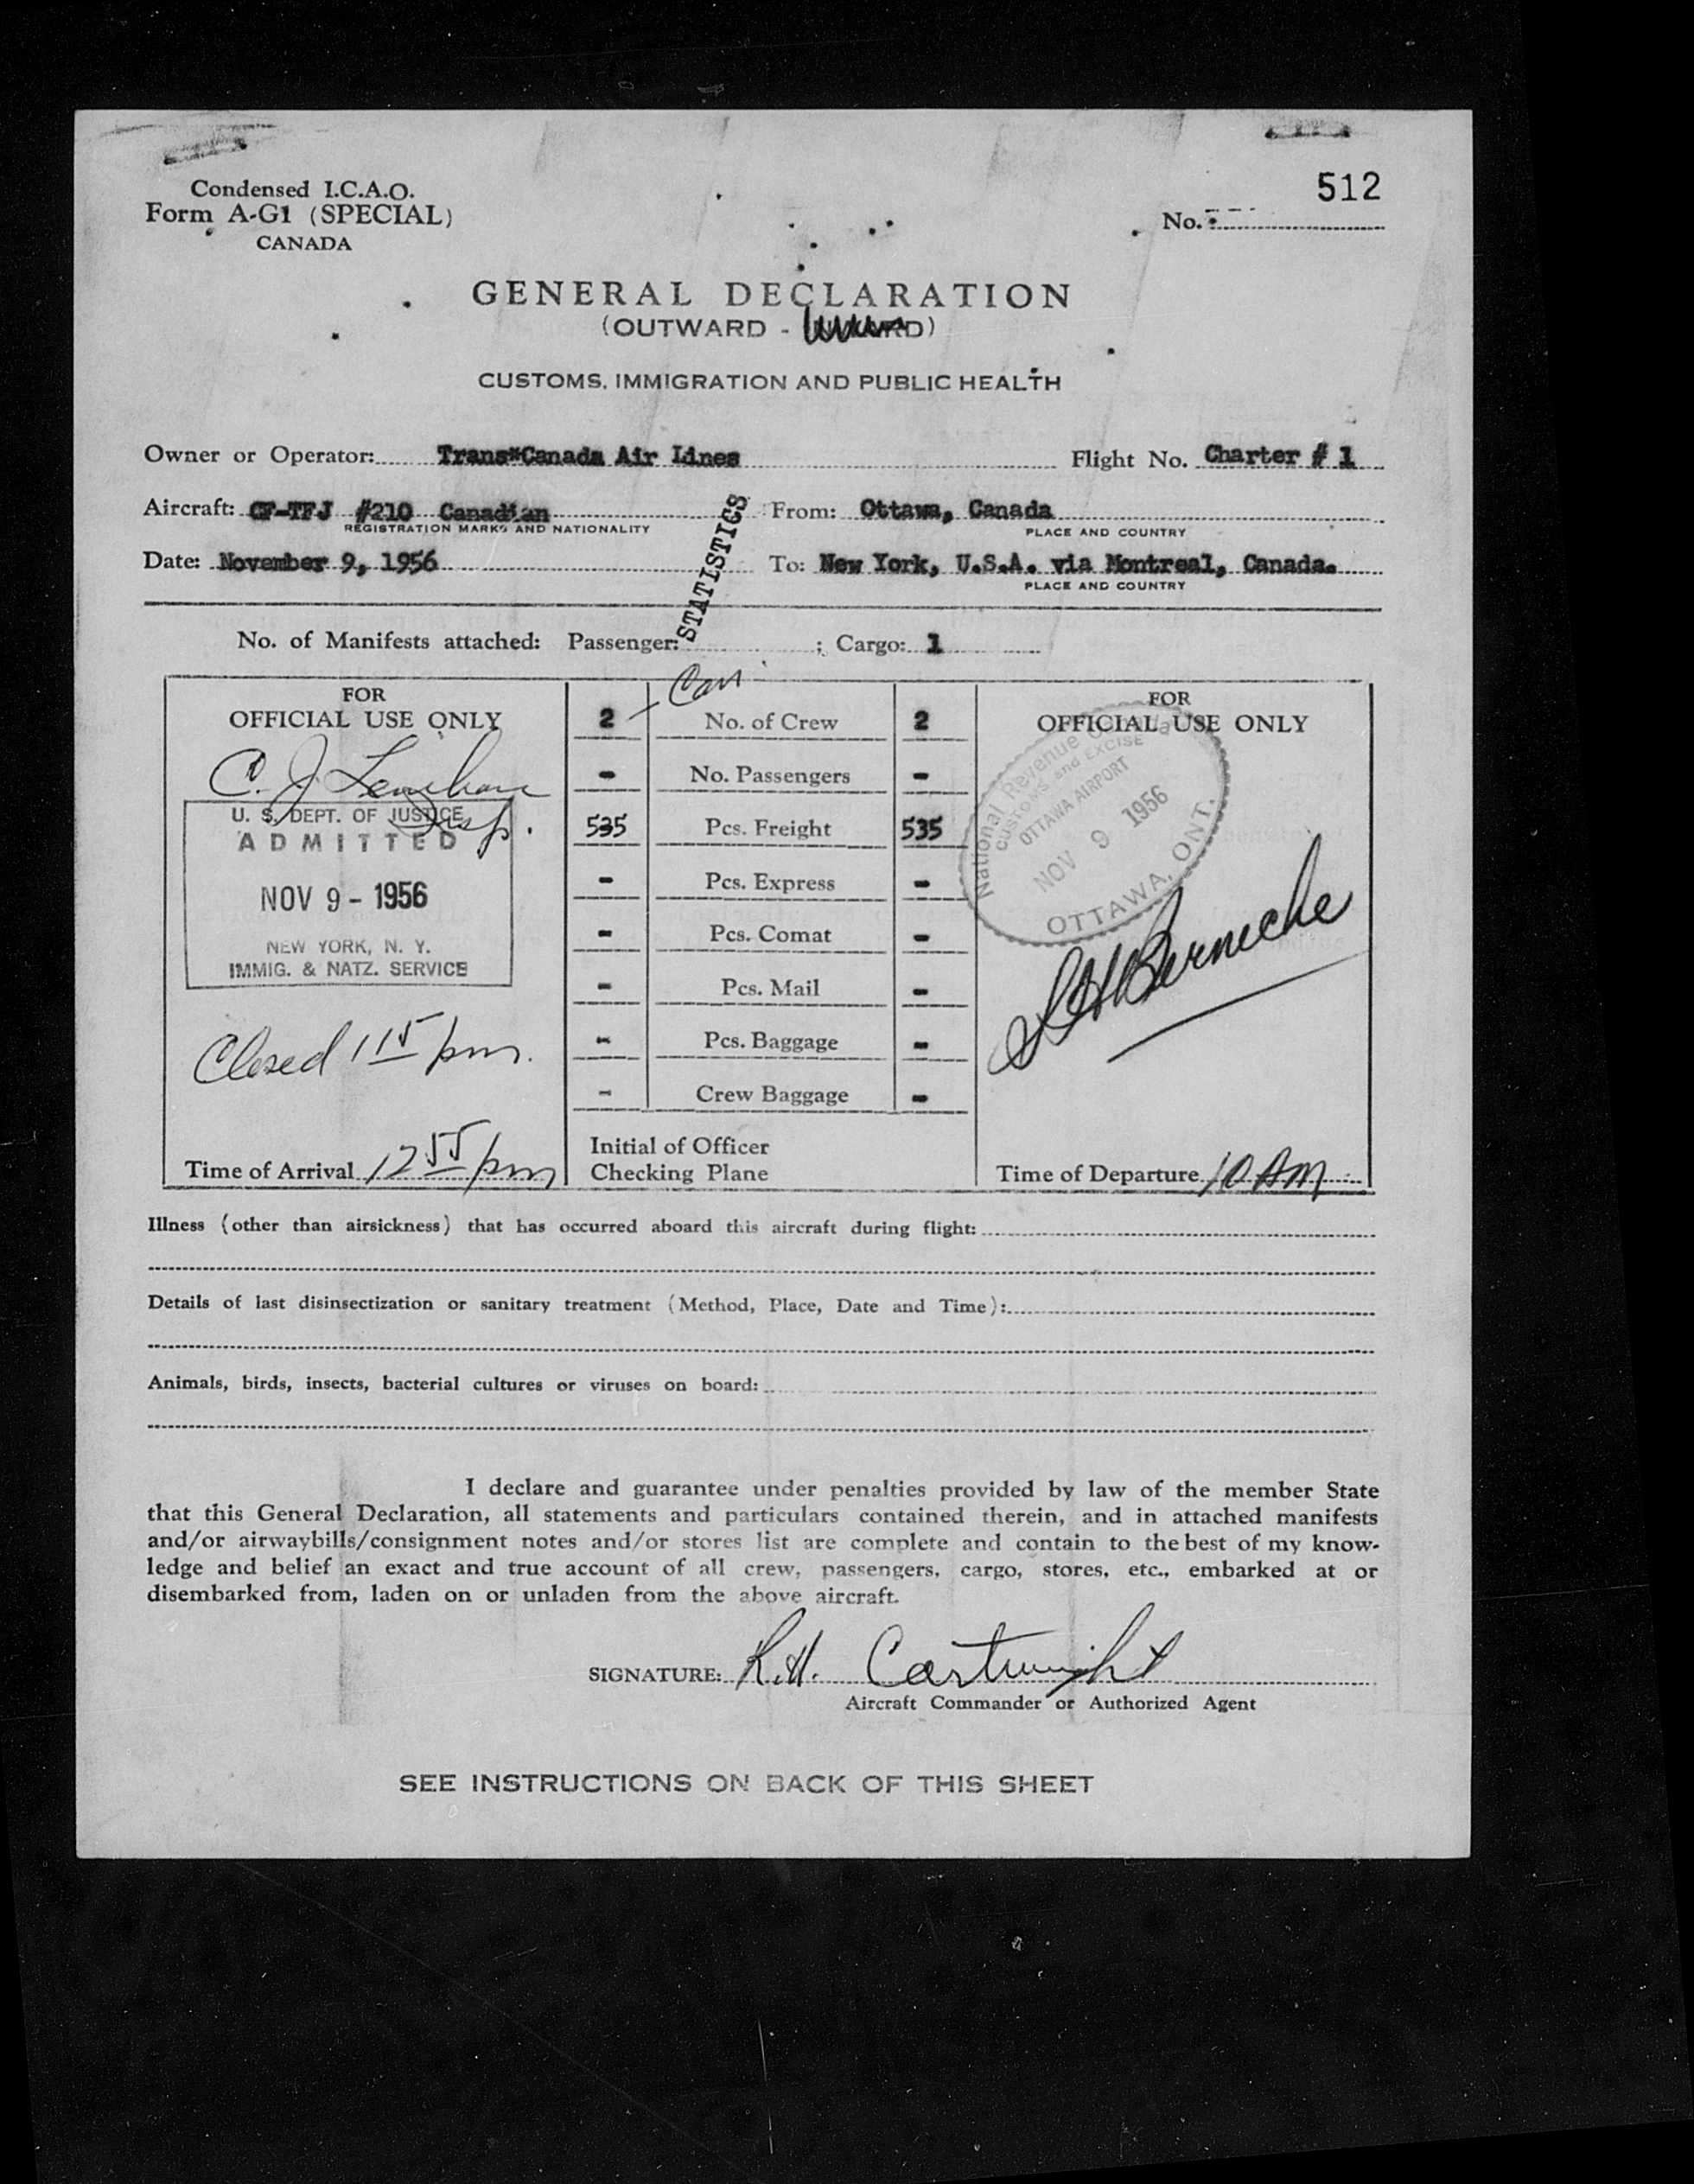 Condensed I.C.A.O.
Form A-G1 (SPECIAL)
CANADA
512
No.
GENERAL DECLARATION
(OUTWARD - INWARD)
CUSTOMS, IMMIGRATION AND PUBLIC HEALTH
Owner or Operator: Trans*Canada Air Lines Flight No. Charter # 1
Aircraft: CF-TFJ #210 Canadian From: Ottawa, Canada
REGISTRATION MARKS AND NATIONALITY PLACE AND COUNTRY
Date: November 9, 1956 To: New York, U.S.A. via Montreal, Canada.
PLACE AND COUNTRY
STATISTICS
No. of Manifests attached: Passenger: ; Cargo: 1
FOR
OFFICIAL USE ONLY
C. J. Lenehan
Insp.
U. S. DEPT. OF JUSTICE
ADMITTED
NOV 9 - 1956
NEW YORK, N. Y.
IMMIG. & NATZ. SERVICE
Closed 1 15 pm.
Time of Arrival 12 55 pm
Can
2 No. of Crew 2
- No. Passengers -
535 Pcs. Freight 535
- Pcs. Express -
- Pcs. Comat -
- Pcs. Mail -
- Pcs. Baggage -
- Crew Baggage -
Initial of Officer
Checking Plane
FOR
OFFICIAL USE ONLY
National Revenue Canada
CUSTOMS and EXCISE
OTTAWA AIRPORT
NOV 9 1956
OTTAWA, ONT.
Berneche
Time of Departure 10 AM
Illness (other than airsickness) that has occurred aboard this aircraft during flight:
Details of last disinsectization or sanitary treatment (Method, Place, Date and Time):
Animals, birds, insects, bacterial cultures or viruses on board:
I declare and guarantee under penalties provided by law of the member State
that this General Declaration, all statements and particulars contained therein, and in attached manifests
and/or airwaybills/consignment notes and/or stores list are complete and contain to the best of my know-
ledge and belief an exact and true account of all crew, passengers, cargo, stores, etc., embarked at or
disembarked from, laden on or unladen from the above aircraft.
SIGNATURE: R.H. Cartwright
Aircraft Commander or Authorized Agent
SEE INSTRUCTIONS ON BACK OF THIS SHEET